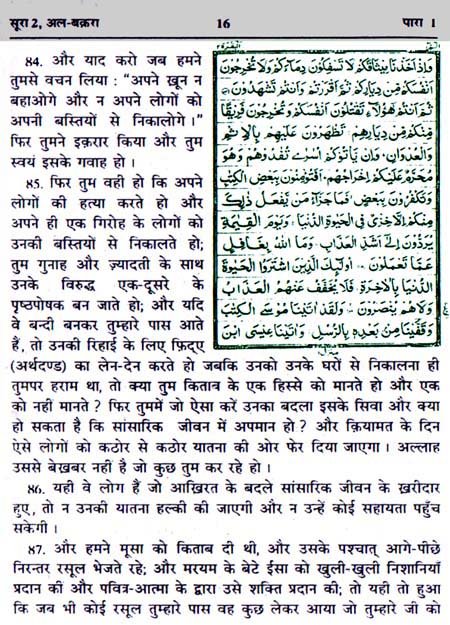 सूरा 2, अल-बक़रा 16 पारा 1
84. और याद करो जब हमने
तुमसे वचन लिया : “अपने ख़ून न
बहाओगे और न अपने लोगों को
अपनी बस्तियों से निकालोगे ।”
फिर तुमने इक़रार किया और तुम
स्वयं इसके गवाह हो ।
85. फिर तुम वही हो कि अपने
लोगों की हत्या करते हो और
अपने ही एक गिरोह के लोगों को
उनकी बस्तियों से निकालते हो;
तुम गुनाह और ज़्यादती के साथ
उनके विरुद्ध एक-दूसरे के
पृष्ठपोषक बन जाते हो; और यदि
वे बन्दी बनकर तुम्हारे पास आते
हैं, तो उनकी रिहाई के लिए फ़िद्ए
وَإِذْ أَخَذْنَا مِيثَاقَكُمْ لَا تَسْفِكُونَ دِمَاءَكُمْ وَلَا تُخْرِجُونَ
أَنْفُسَكُمْ مِنْ دِيَارِكُمْ ثُمَّ أَقْرَرْتُمْ وَأَنْتُمْ تَشْهَدُونَ
ثُمَّ أَنْتُمْ هَؤُلَاءِ تَقْتُلُونَ أَنْفُسَكُمْ وَتُخْرِجُونَ فَرِيقًا
مِنْكُمْ مِنْ دِيَارِهِمْ تَظَاهَرُونَ عَلَيْهِمْ بِالْإِثْمِ
وَالْعُدْوَانِ وَإِنْ يَأْتُوكُمْ أُسَارَى تُفَادُوهُمْ وَهُوَ
مُحَرَّمٌ عَلَيْكُمْ إِخْرَاجُهُمْ أَفَتُؤْمِنُونَ بِبَعْضِ الْكِتَابِ
وَتَكْفُرُونَ بِبَعْضٍ فَمَا جَزَاءُ مَنْ يَفْعَلُ ذَلِكَ
مِنْكُمْ إِلَّا خِزْيٌ فِي الْحَيَاةِ الدُّنْيَا وَيَوْمَ الْقِيَامَةِ
يُرَدُّونَ إِلَى أَشَدِّ الْعَذَابِ وَمَا اللَّهُ بِغَافِلٍ
عَمَّا تَعْمَلُونَ أُولَئِكَ الَّذِينَ اشْتَرَوُا الْحَيَاةَ
الدُّنْيَا بِالْآخِرَةِ فَلَا يُخَفَّفُ عَنْهُمُ الْعَذَابُ
وَلَا هُمْ يُنْصَرُونَ وَلَقَدْ آتَيْنَا مُوسَى الْكِتَابَ
وَقَفَّيْنَا مِنْ بَعْدِهِ بِالرُّسُلِ وَآتَيْنَا عِيسَى ابْنَ
(अर्थदण्ड) का लेन-देन करते हो जबकि उनको उनके घरों से निकालना ही
तुमपर हराम था, तो क्या तुम किताब के एक हिस्से को मानते हो और एक
को नहीं मानते ? फिर तुममें जो ऐसा करें उनका बदला इसके सिवा और क्या
हो सकता है कि सांसारिक जीवन में अपमान हो ? और क़ियामत के दिन
ऐसे लोगों को कठोर से कठोर यातना की ओर फेर दिया जाएगा । अल्लाह
उससे बेख़बर नहीं है जो कुछ तुम कर रहे हो ।
86. यही वे लोग हैं जो आख़िरत के बदले सांसारिक जीवन के ख़रीदार
हुए, तो न उनकी यातना हल्की की जाएगी और न उन्हें कोई सहायता पहुँच
सकेगी ।
87. और हमने मूसा को किताब दी थी, और उसके पश्चात् आगे-पीछे
निरन्तर रसूल भेजते रहे; और मरयम के बेटे ईसा को खुली-खुली निशानियाँ
प्रदान की और पवित्र-आत्मा के द्वारा उसे शक्ति प्रदान की; तो यही तो हुआ
कि जब भी कोई रसूल तुम्हारे पास वह कुछ लेकर आया जो तुम्हारे जी को